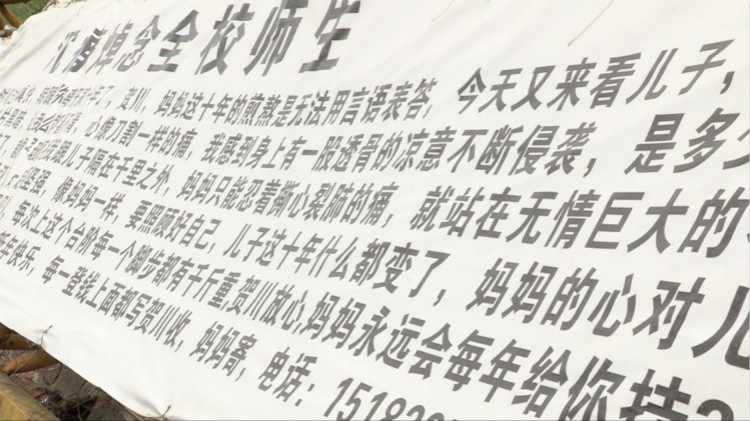 沉痛悼念全校师生
贺川,妈妈这十年的煎熬是无法用言语表答,今天又来看儿子,
心像刀割一样的痛,我感到身上有一股透骨的凉意不断侵袭,是多
儿子隔在千里之外,妈妈只能忍着撕心裂肺的痛,就站在无情巨大的
坚强,像妈妈一样,要照顾好自己,儿子这十年什么都变了,妈妈的心对儿
每次上这个台阶每一个脚步都有千斤重,贺川放心,妈妈永远会每年给你
年快乐,每一登钱上面都写贺川收,妈妈寄,电话:15182